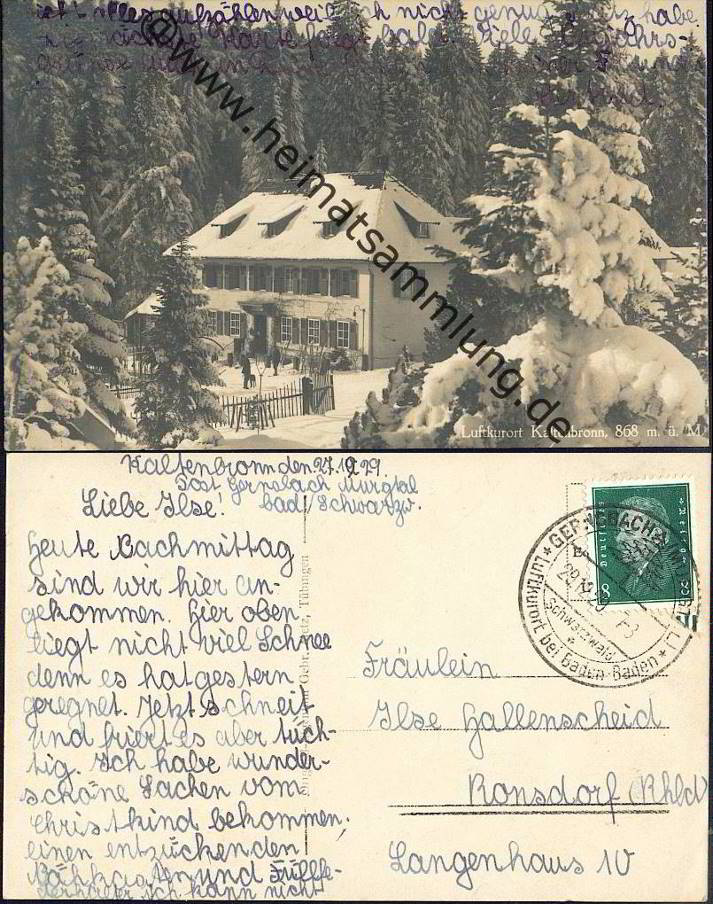 alles aufzählen weil ich nicht genug Platz habe
nächste Karte folgt bald. Viele
© www.heimatsammlung.de
Luftkurort Kaltenbronn, 868 m. ü. M.
Kaltenbronn den 27.12.29
Post Gernsbach Murgtal
Bad/Schwarzw.
Liebe Ilse!
Heute Nachmittag
sind wir hier an-
gekommen. Hier oben
liegt nicht viel Schnee
denn es hat gestern
geregnet. Jetzt schneit
und friert es aber tüch-
tig. Ich habe wunder-
schöne Sachen vom
Christkind bekommen,
einen entzückenden
Nähkasten und Füllfe-
derhalter ich kann nicht
Gebr. Metz, Tübingen
GERNSBACH MURGTAL
29.12.29
Schwarzwald
Luftkurort bei Baden-Baden
Deutsches Reich
8
Fräulein
Ilse Hallenscheid
Ronsdorf (Rhld)
Langenhaus 10